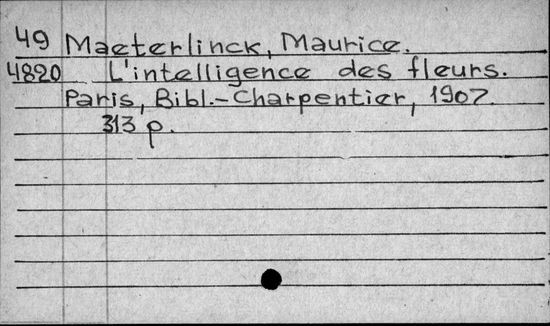 49 Maeterlinck, Maurice.
4820 L'intelligence des fleurs.
Paris, Bibl.-Charpentier, 1907.
313 p.